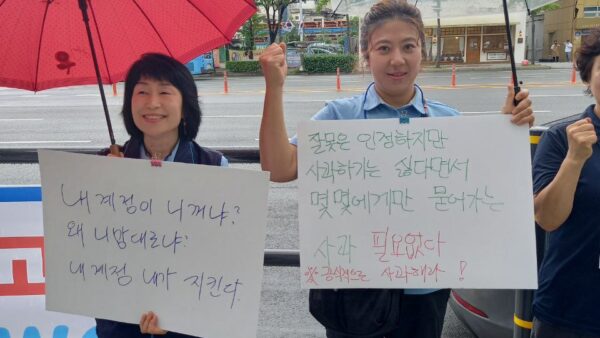 내 계정이 니꺼냐?
왜 니맘대로냐?
내 계정 내가 지킨다.
잘못은 인정하지만
사과하기는 싫다면서
몇몇에게만 묻어가는
사과 필요없다
공식적으로 사과해라!